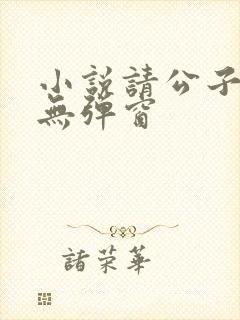 小說請公子
無彈窗
諸荣華